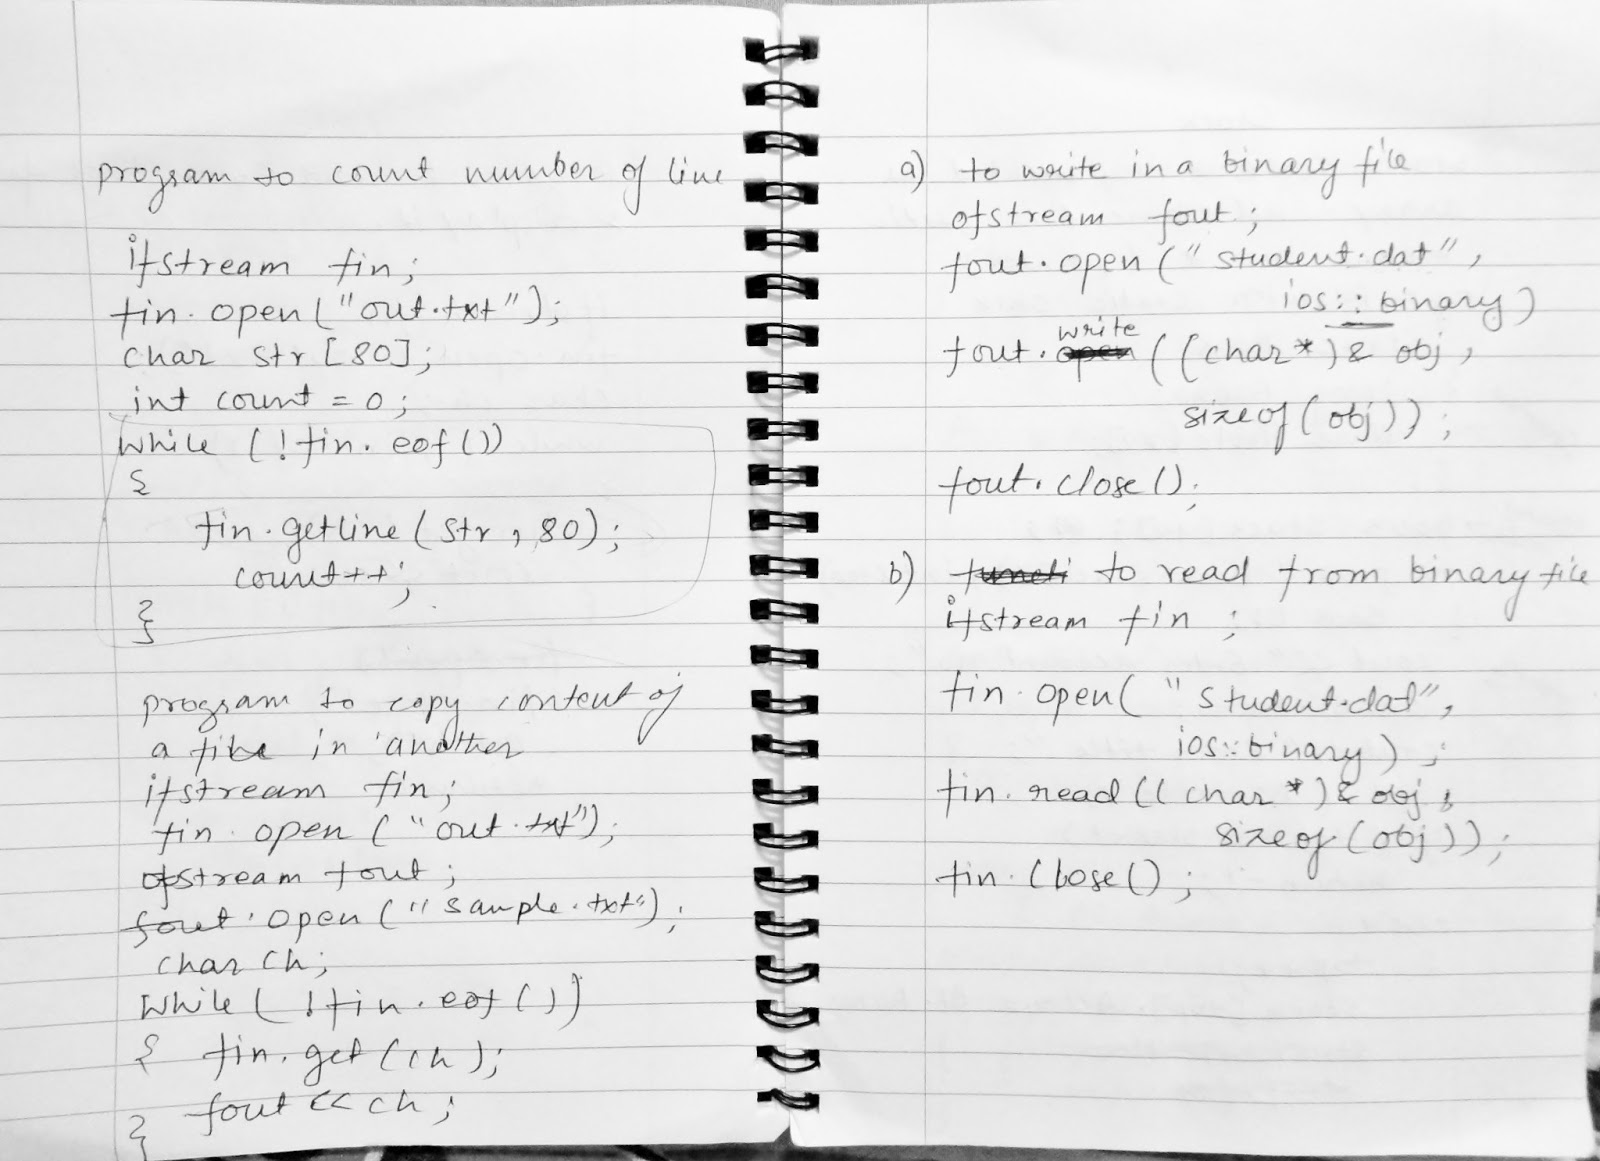 program to count number of line
ifstream fin;
fin.open("out.txt");
char str[80];
int count = 0;
while (!fin.eof())
{
fin.getline(str, 80);
count++;
}
program to copy content of
a file in another
ifstream fin;
fin.open("out.txt");
ofstream fout;
fout.open("sample.txt");
char ch;
while(!fin.eof())
{ fin.get(ch);
fout << ch;
}
a) to write in a binary file
ofstream fout;
fout.open("student.dat",
ios::binary)
write
fout.open((char*)& obj,
sizeof(obj));
fout.close();
b) functi to read from binary file
ifstream fin;
fin.open("student.dat",
ios::binary);
fin.read((char*)& obj,
sizeof(obj));
fin.close();